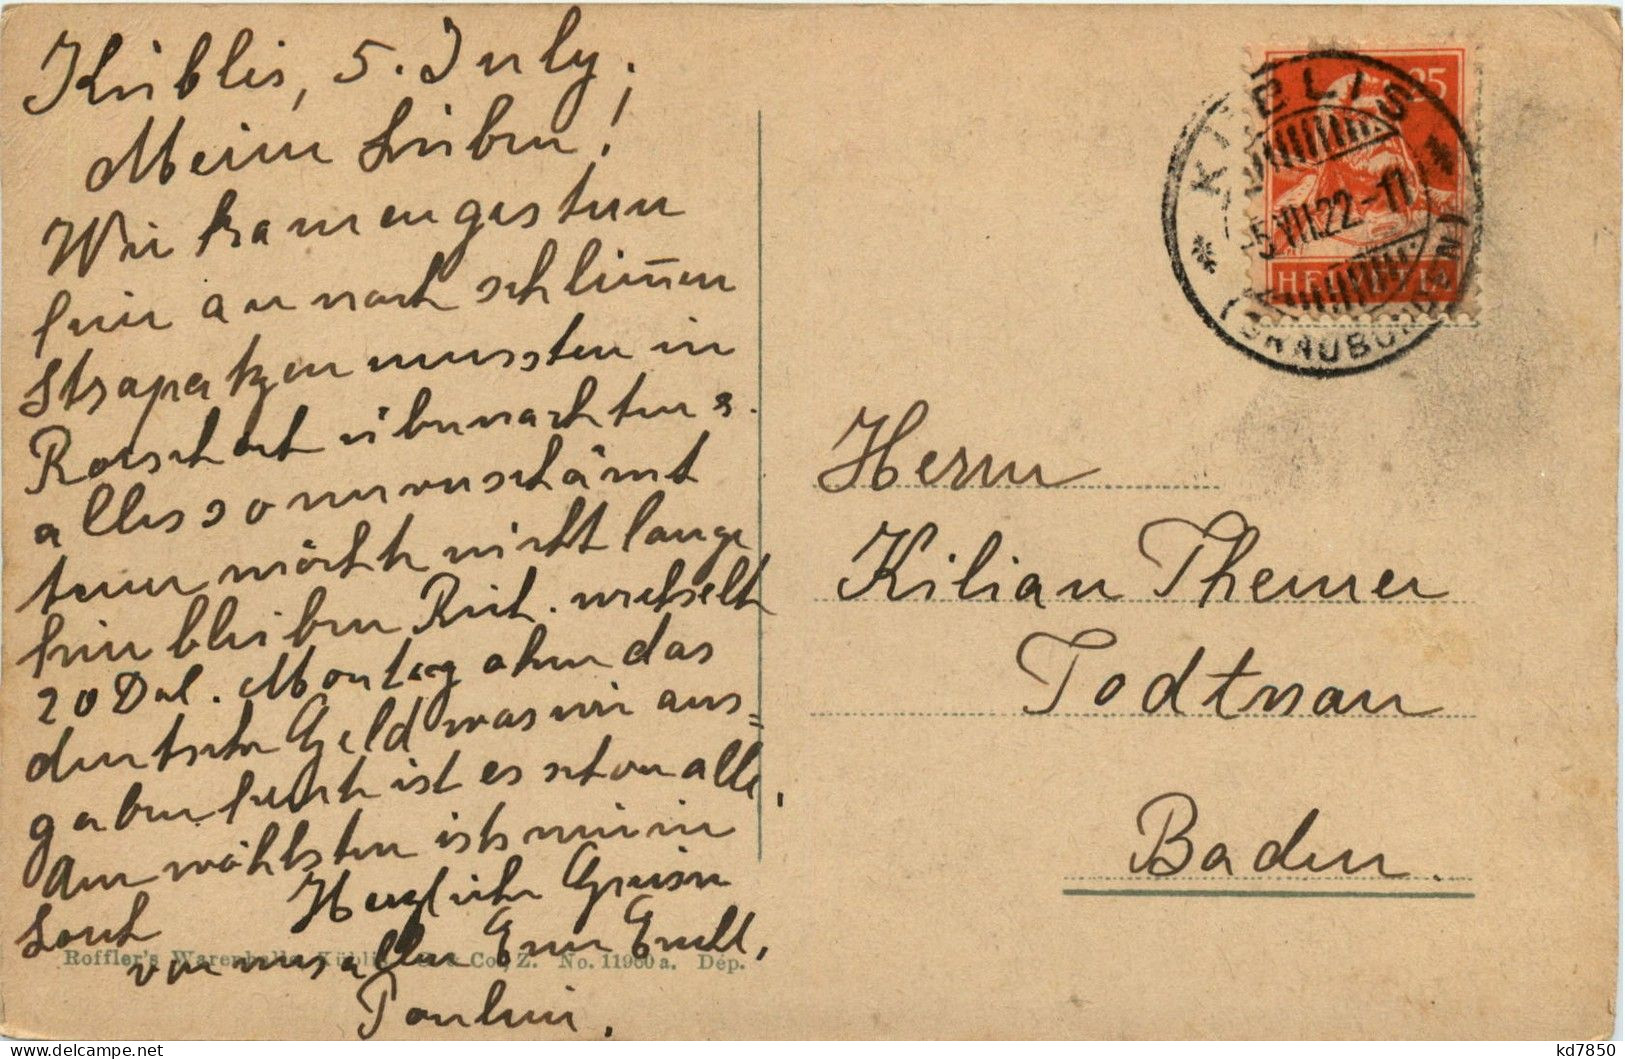 Küblis, 5. July.
Meine Lieben!
Wir kamen gestern
hier an nach schlim̄en
Strapatzen mussten in
Rorschach übernachten s.
alles so unverschämt
teuer möchte nicht lange
hier bleiben Rich. wechselte
20 Dol. Montag ohne das
deutsche Geld was wir aus=
gaben heute ist es schon alle,
Am wöhlsten ists mir in
Herzliche Grüsse
von uns allen Euer
Pauline.
KÜBLIS
-5.VII.22.-11
(GRAUBÜNDEN)
25
HELVETIA
Herrn
Kilian Themer
Todtnau
Baden.
Roffler's Warenhalle Küblis Co., Z. No. 11960 a. Dép.
kd7850